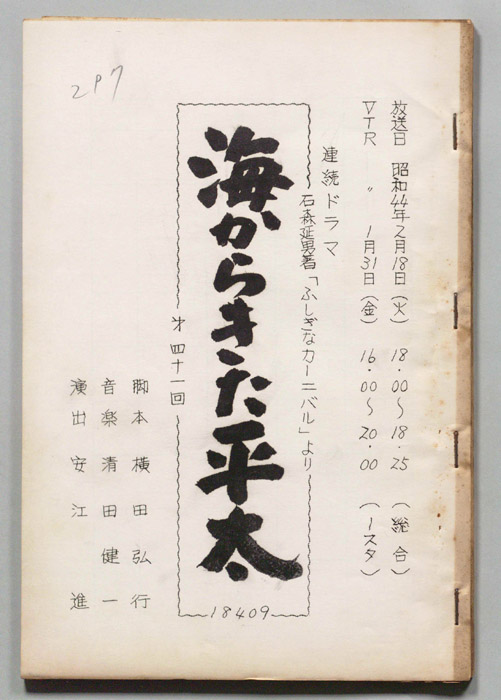 放送日 昭和44年2月18日(火) 18.00〜18.25 (総合)
VTR 〃 1月31日(金) 16.00〜20.00 (1スタ)
連続ドラマ
石森延男著「ふしぎなカーニバル」より
海からきた平太
才四十一回
18409
脚本 横田弘行
音楽 清田健一
演出 安江 進
297